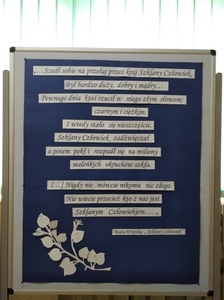 „…Szedł sobie na przełaj przez kraj Szklany Człowiek.
Był bardzo duży, dobry i mądry…
Pewnego dnia ktoś rzucił w niego złym słowem:
czarnym i ciężkim.
I wtedy stało się nieszczęście.
Szklany Człowiek zadźwięczał
a potem pękł i rozpadł się na miliony
maleńkich okruchów szkła.
[…] Nigdy nie mówcie nikomu nic złego.
Nie wiecie przecież kto z nas jest
Szklanym Człowiekiem….„
Beata Krupska „Szklany Człowiek